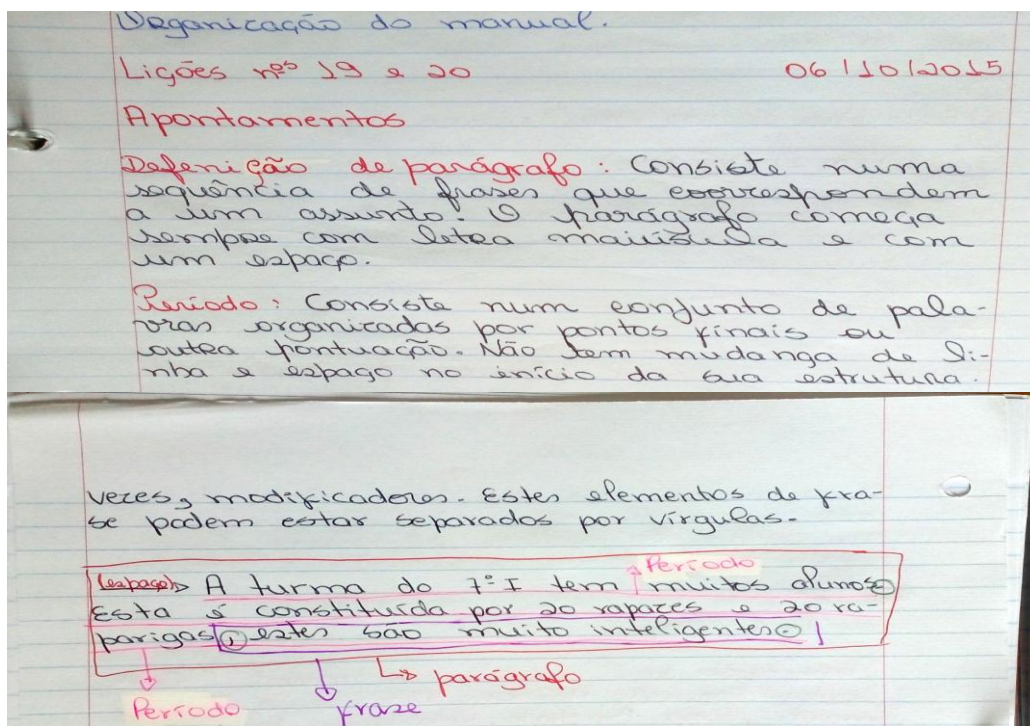 Organicação do manual.
Lições nºs 19 e 20 06/10/2015
Apontamentos
Defenição de parágrafo: Consiste numa
sequência de frases que correspondem
a um assunto. O parágrafo começa
sempre com letra maiúscula e com
um espaço.
Período: Consiste num conjunto de pala-
vras organizadas por pontos finais ou
outra pontuação. Não tem mudança de li-
nha e espaço no início da sua estrutura.
vezes, modificadores. Estes elementos de fra-
se podem estar separados por vírgulas.
Período
(espaço) A turma do 7º I tem muitos alunos.
Esta é constituída por 20 rapazes e 20 ra-
parigas, estes são muito inteligentes.
parágrafo
Período fraze